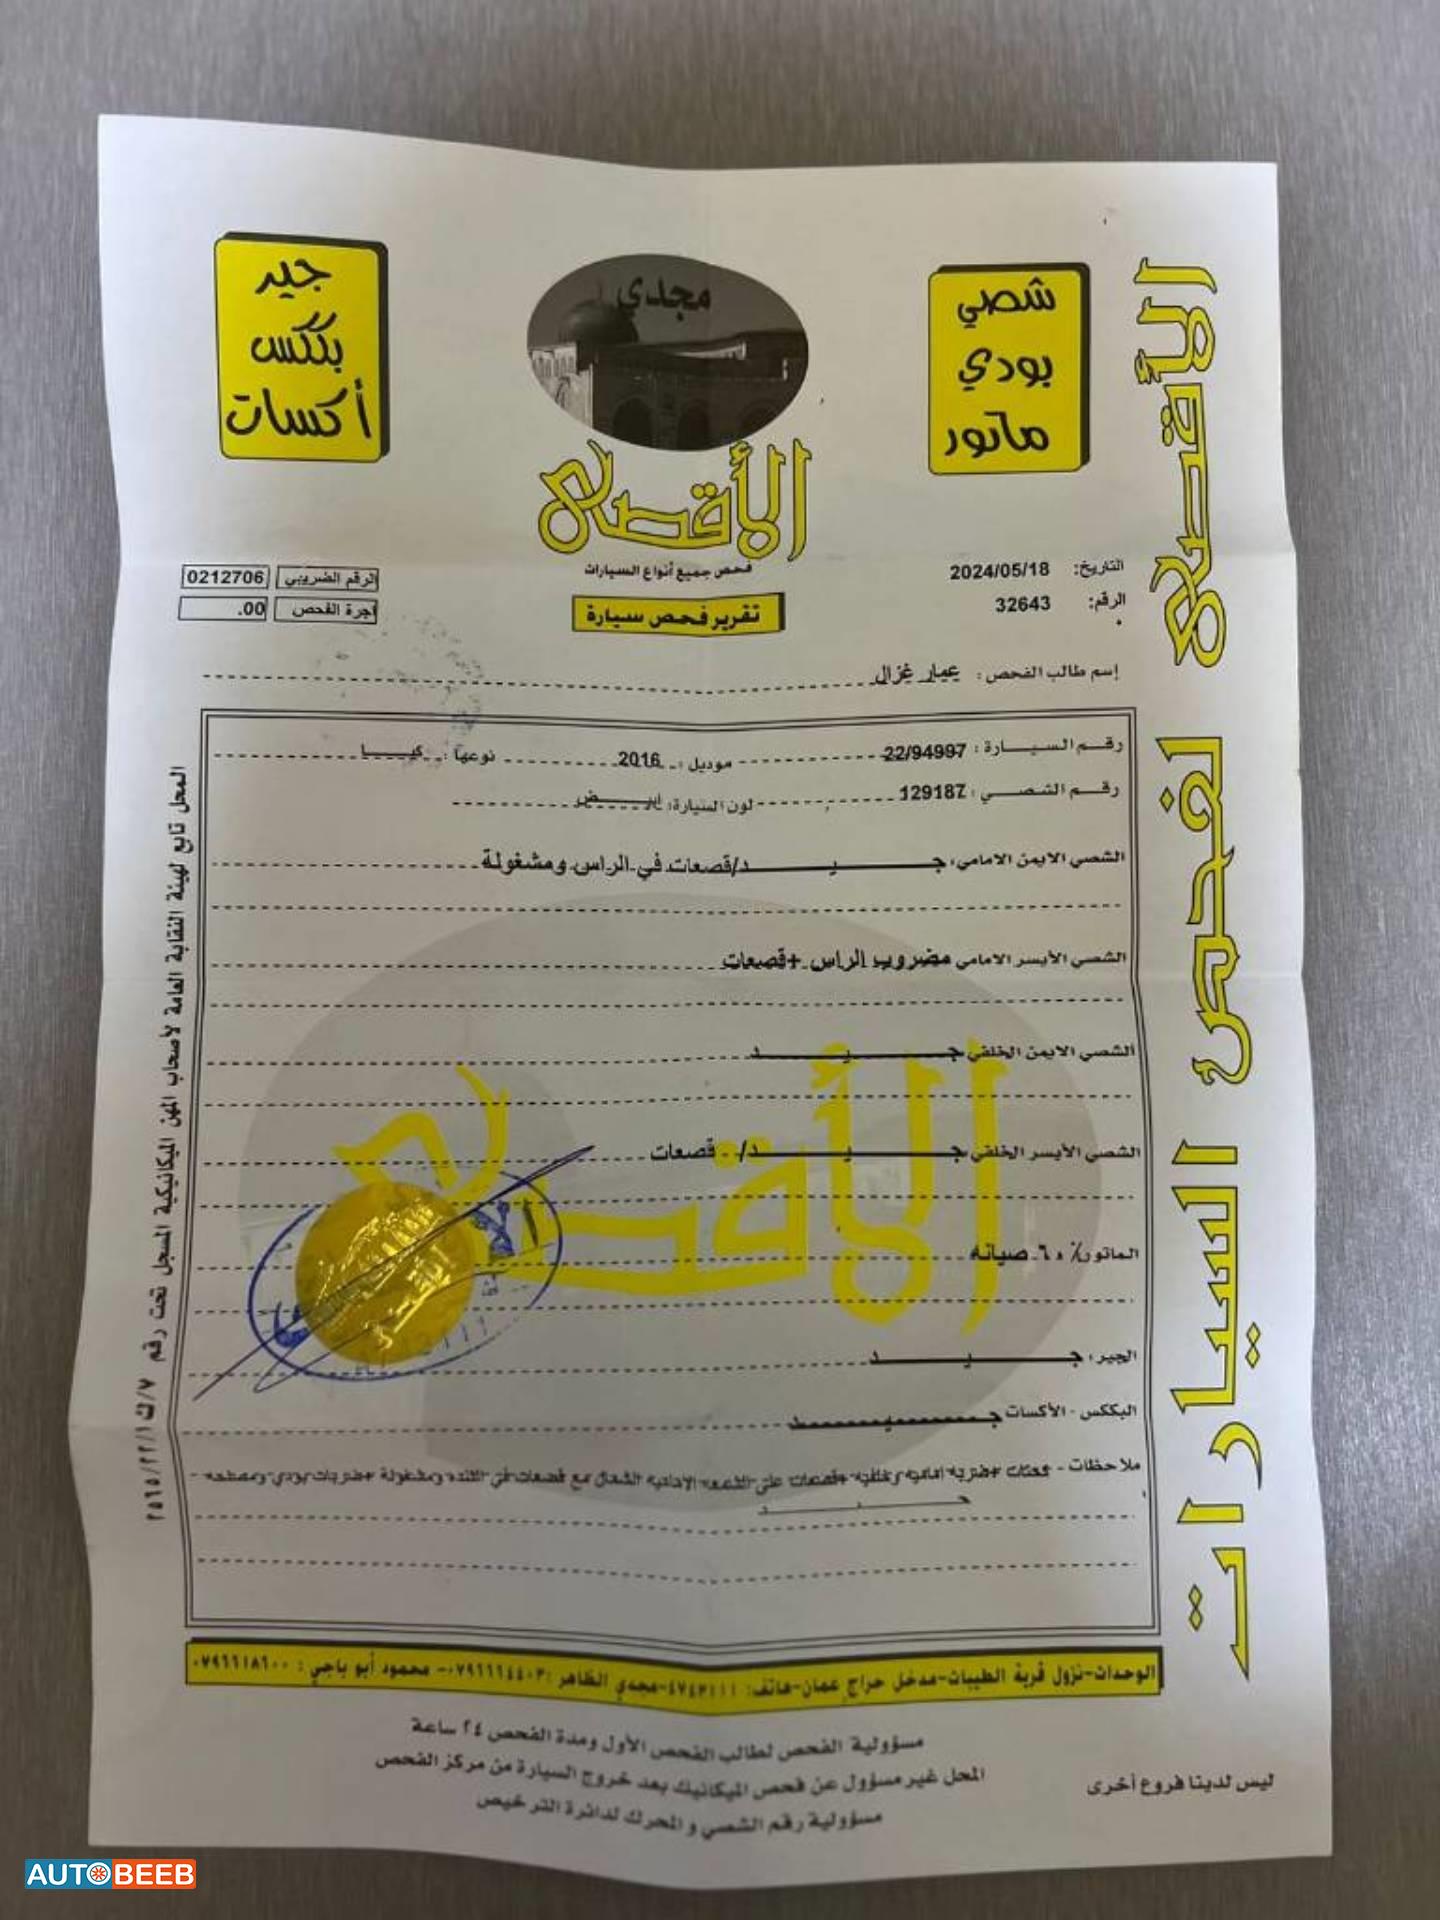 شصي
بودي
ماتور
مجدي
الأقصى
فحص جميع أنواع السيارات
تقرير فحص سيارة
جير
بككس
أكسات
التاريخ: 2024/05/18
الرقم: 32643
الرقم الضريبي 0212706
اجرة الفحص 00.
إسم طالب الفحص: عمار غزال
رقم السيارة: 22/94997 موديل: 2016 نوعها: كيا
رقم الشصي: 129187 لون السيارة: ابيض
الشصي الايمن الامامي: جيد/قصعات في الراس ومشغولة
الشصي الأيسر الامامي مضروب الراس +قصعات
الشصي الايمن الخلفي جيد
الشصي الأيسر الخلفي جيد/ قصعات
الماتور٪ ٦٥ صيانه
الجير: جيد
البككس - الأكسات جيد
ملاحظات - +ضربه اماميه وخلفيه +قصعات على الاماميه الشمال مع قصعات في ومشغولة +ضربات بودي
جيد
الأقصى لفحص السيارات
المحل تابع لهيئة النقابة العامة لأصحاب المهن الميكانيكية المسجل تحت رقم ٧/ك/٢٢/١/٢٥٦٥
الوحدات-نزول قرية الطيبات-مدخل حراج عمان-هاتف: ٤٧٤٢١١١-مجدي الظاهر: ٠٧٩٦٦٦٤٤٠٣- محمود أبو باجي: ٠٧٩٦٦١٨٦٠٠
مسؤولية الفحص لطالب الفحص الأول ومدة الفحص ٢٤ ساعة
المحل غير مسؤول عن فحص الميكانيك بعد خروج السيارة من مركز الفحص
مسؤولية رقم الشصي و المحرك لدائرة الترخيص
ليس لدينا فروع أخرى
AUTOBEEB